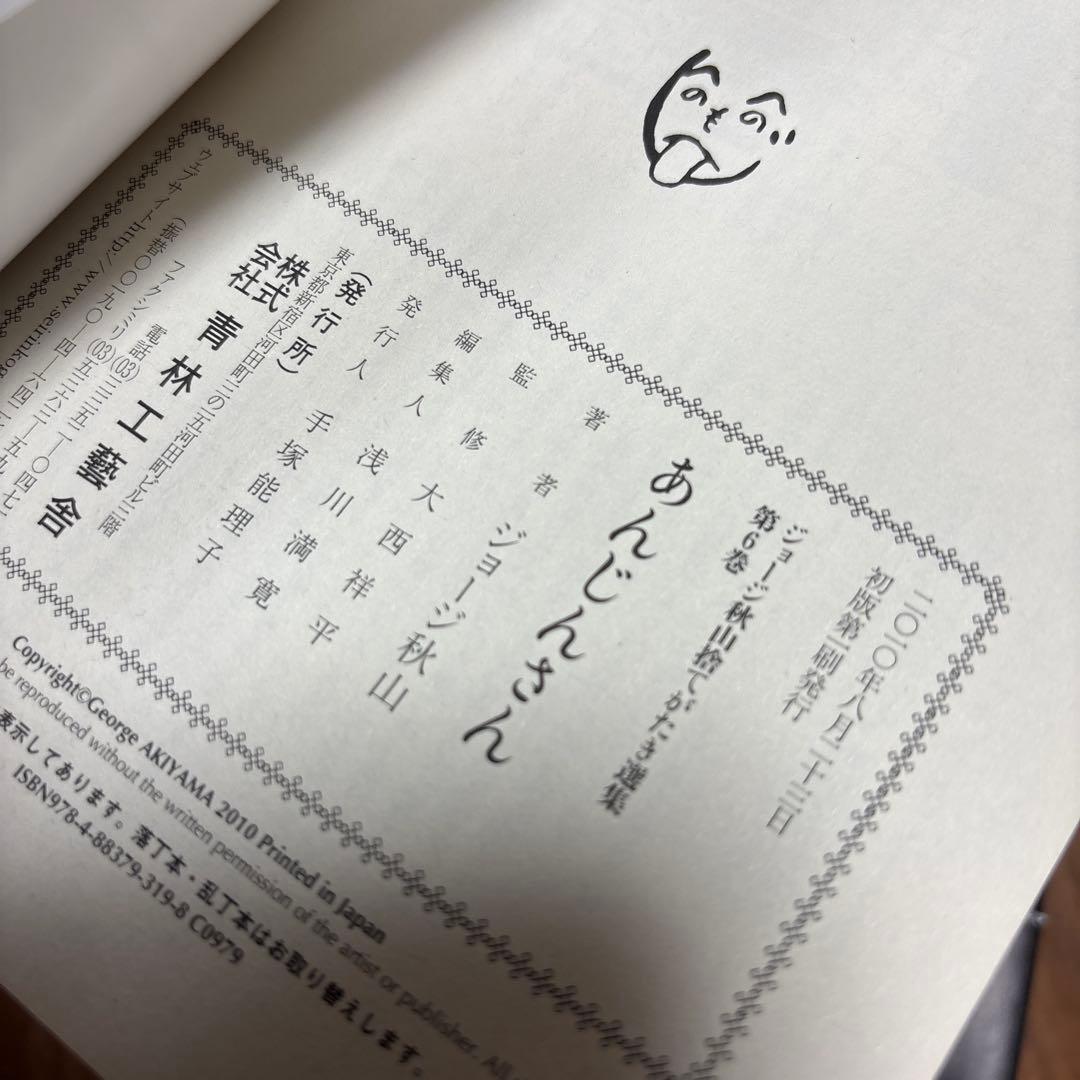 二〇一〇年八月二十三日
初版第一刷発行
ジョージ秋山捨てがたき選集
第6巻
あんじんさん
著者 ジョージ秋山
監修 大西祥平
編集人 浅川満寛
発行人 手塚能理子
(発行所)
株式会社 青林工藝舎
東京都新宿区河田町三の五河田町ビル二階
電話(03)
ファクシミリ(03)五三六二-一五九
(振替〇〇一九〇-四-六四
ウェブサイトhttp://www.seirinkog
Copyright©George AKIYAMA 2010 Printed in Japan
be reproduced without the written permission of the artist or publisher. All
表示してあります。落丁本・乱丁本はお取り替えします。
ISBN978-4-88379-319-8 C0979